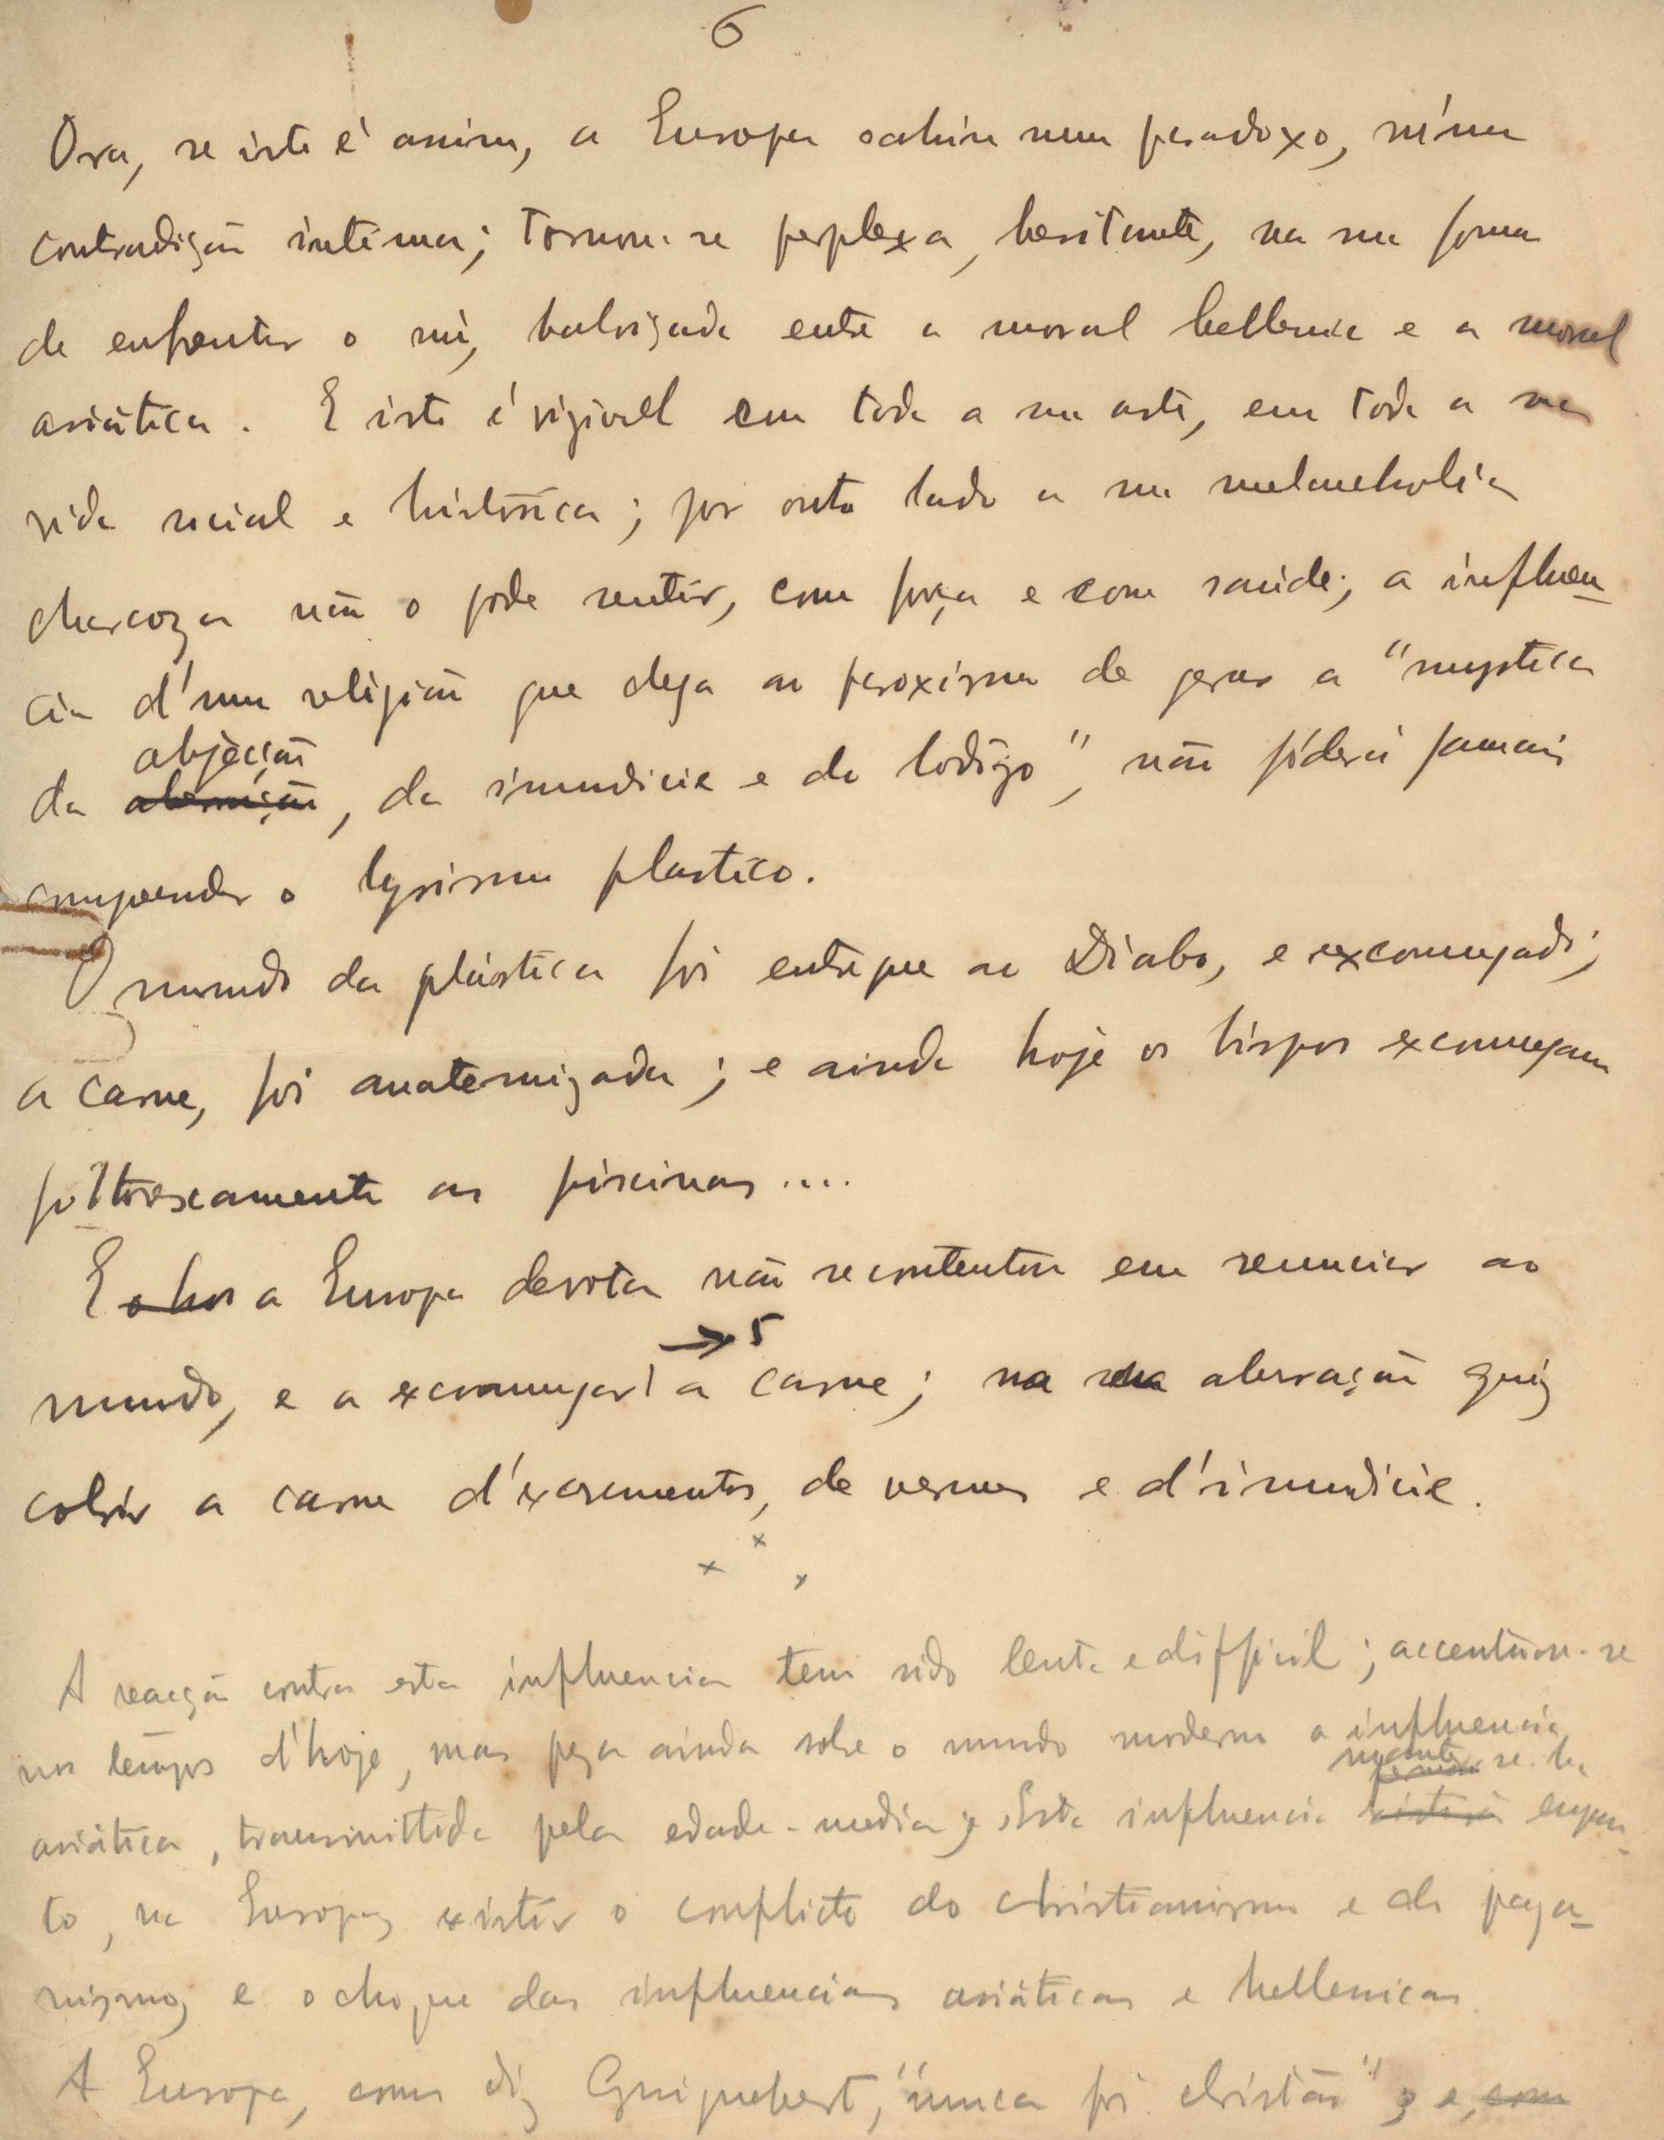 6
Ora, se isto é assim, a Europa cahiu num paradoxo, n'uma
contradição intima; tornou-se perplexa, hesitante, na sua forma
de enfrentar o nú, balisada entre a moral hellenica e a moral
asiática. E isto é visivel em toda a sua arte, em toda a sua
vida social e histórica; por outro lado a sua melancholia
não o pode sentir, com força e com saúde; a influen-
cia d'uma religião que chega ao paroxismo de gerar a "mystica
abjeção
da aberração, da imundicie e do lodoso", não póderá jamais
comprender o lyrismo plastico.
O mundo da plástica foi entregue ao Diabo, e excomungado;
a carne, foi anatemizada; e ainda hoje os bispos excomungam
pittorescamente as piscinas....
E a Europa devota não se contentou em renunciar ao
→ 5
mundo, e a excomungar a carne; na sua aberração quiz
cobrir a carne d'excrementos, de vermes e d'imundicie.
x x x
A reacção contra esta influencia tem sido lenta e difficil; accentuou-se
nos tempos d'hoje, mas peza ainda sobre o mundo moderno a influencia
se-ha
asiática, transmittida pela edade-media; Esta influencia enquan-
to, na Europa, existir o conflicto do christianismo e do paga-
nismo, e o choque das influencias asiáticas e hellenicas.
A Europa, como diz Guignebert, "nunca foi christã"; e, com